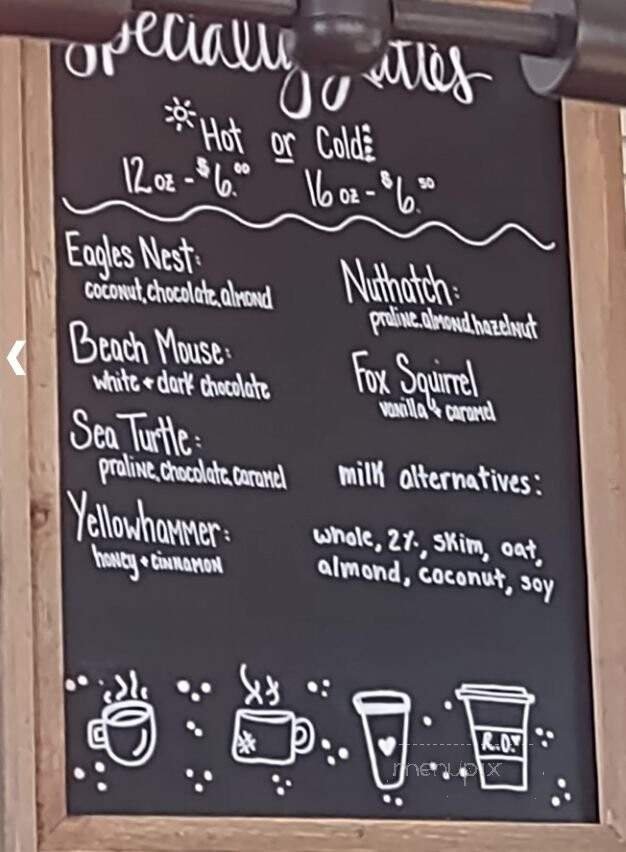 Specialty Lattes
Hot or Cold
12 oz - $6.00 16 oz - $6.50
Eagles Nest:
coconut, chocolate, almond
Beach Mouse:
white + dark chocolate
Sea Turtle:
praline, chocolate, caramel
Yellowhammer:
honey + cinnamon
Nuthatch:
praline, almond, hazelnut
Fox Squirrel
vanilla & caramel
milk alternatives:
whole, 2%, skim, oat,
almond, coconut, soy
R.O.
menupix